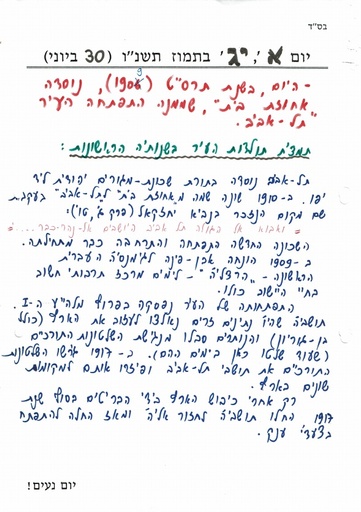 בס״ד
יום א', יג' בתמוז תשנ״ו (30 ביוני)
- היום, בשנת תרס״ט (1909), נוסדה
"אחוזת בית", שממנה התפתחה העיר
תל-אביב.
תמצית תולדות העיר בשנותיה הראשונות:
תל-אביב נוסדה בתורת שכונת-מגורים יהודית ליד
יפו. ב-1910 שונה שמה מ"אחוזת בית" ל"תל-אביב" בעקבות
שם מקום הנזכר בנביא יחזקאל (פרק ג', טו'):
"ואבוא אל הגולה תל אביב היושבים אל-נהר-כבר...".
השכונה החדשה התפתחה והתרחבה כבר מתחילתה.
ב-1909 הונחה אבן-פינה לגימנסיה העברית
הראשונה - "הרצליה" - לימים מרכז תרבותי חשוב
בחיי היישוב כולו.
התפתחותה של העיר נפסקה בפרוץ מלה״ע ה-I.
תושביה שהיו נתינים זרים נאלצו לעזוב את הארץ (כולל
בן-גוריון) והנותרים סבלו מנגישות השלטונות התורכיים
(שעוד שלטו כאן בימים ההם). ב-1917 גירשו השלטונות
התורכיים את תושבי תל-אביב ופיזרו אותם למקומות
שונים בארץ.
רק אחרי כיבוש הארץ בידי הבריטים בסוף שנת
1917 החלו תושביה לחזור אליה ומאז החלה להתפתח
בצעדי ענק.
יום נעים!